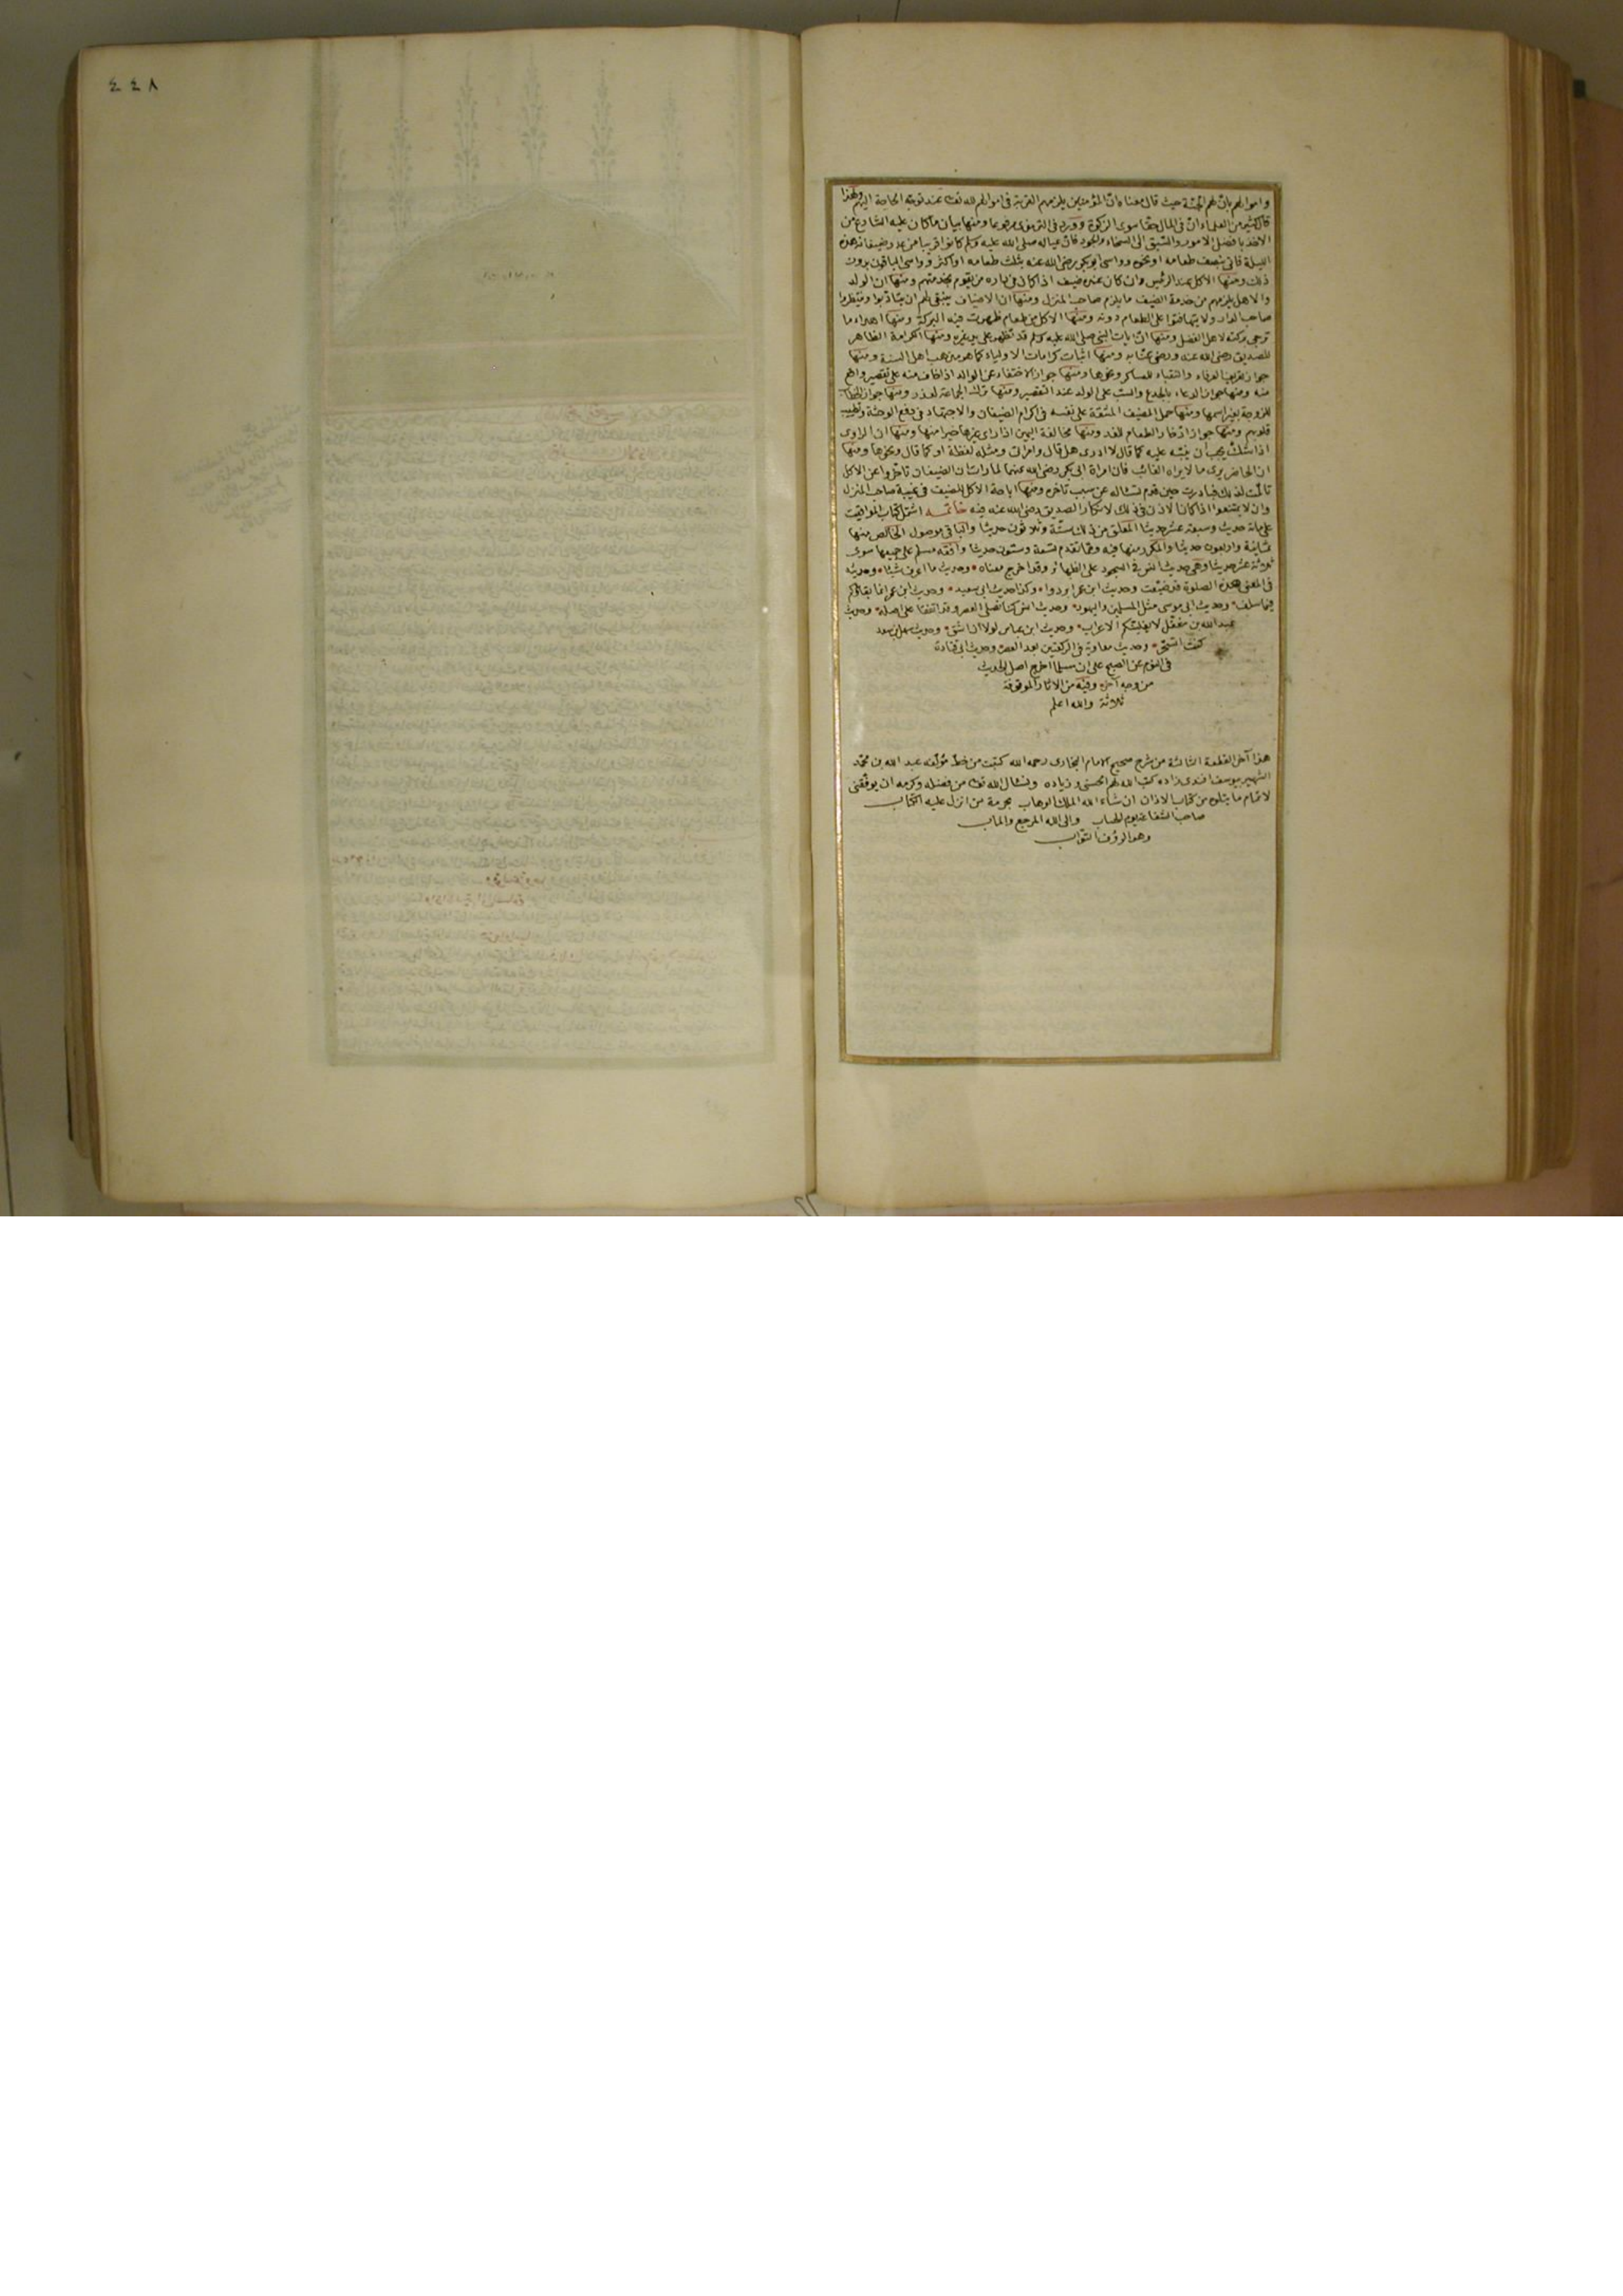 ٤٤٨
واموالهم بان لهم الجنة حيث قال معناه ان المؤمنين يلزمهم القربة في اموالهم لله تعالى عند توجه الحاجة اليهم ولهذا
قال كثير من العلماء ان في المال حقا سوى الزكوة وورد في الترمذي مرفوعا ومنها بيان ما كان عليه الشارع من
الاخذ بافضل الامور والسبق الى السخاء والجود فان عياله صلى الله عليه وسلم كانوا قريبا من عدد ضيفانه هذه
الليلة فاتى بنصف طعامه او نحوه وواسى ابو بكر رضي الله عنه بثلث طعامه او اكثر وواسى الباقون بدون
ذلك ومنها الاكل عند الرئيس وان كان عنده ضيف اذا كان في داره من يقوم بخدمتهم ومنها ان الولد
والاهل يلزمهم من خدمة الضيف ما يلزم صاحب المنزل ومنها ان الاضياف ينبغي لهم ان يتأدبوا وينتظروا
صاحب الدار ولا يتهافتوا على الطعام دونه ومنها الاكل من طعام ظهرت فيه البركة ومنها اهداء ما
ترجى بركته لاهل الفضل ومنها ان ايات النبي صلى الله عليه وسلم قد تظهر على يد غيره ومنها الكرامة الظاهر
للصديق رضي الله عنه ومنها اثبات كرامات الاولياء كما هو مذهب اهل السنة ومنها
جواز تعريف العرفاء والنقباء للعساكر ونحوها ومنها جواز الاختفاء عن الوالد اذا خاف منه على تقصير واقع
منه ومنها جواز الدعاء بالجدع والسب على الولد عند التقصير ومنها ترك الجماعة لعذر ومنها جواز الخطاب
للزوجة بغير اسمها ومنها حمل المضيف المشقة على نفسه في اكرام الضيفان والاجتهاد في دفع الوحشة وتطييب
قلوبهم ومنها جواز ادخار الطعام للغد ومنها مخالفة اليمين اذا راى غيرها خيرا منها ومنها ان الراوى
اذا شك يجب ان ينبه عليه كما قال لا ادرى هل قال وامراتى ومثله لفظة او كما قال ونحوها ومنها
ان الحاضر يرى ما لا يراه الغائب فان امراة ابي بكر رضي الله عنهما لما رات ان الضيفان تاخروا عن الاكل
تالمت لذلك فبادرت حين قدم تسئاله عن سبب تاخره ومنها اباحة الاكل للضيف في غيبة صاحب المنزل
وان لا يمتنعوا اذا كان الاذن في ذلك لانكار الصديق رضي الله عنه فيه خاتمه اشتمل كتاب المواقيت
على مائة حديث وسبعة عشر حديثا المعلق من ذلك ستة وثلاثون حديثا والباقي موصول الخالص منها
ثمانية واربعون حديثا والمكرر منها فيه وفيما تقدم تسعة وستون حديثا وافقه مسلم على جميعها سوى
ثلاثة عشر حديثا وهي حديث انس في السجود على الظهائر وقد اخرج معناه وحديث ما اعرف شيئا وحديثه
في المعنى هذه الصلوة قد ضيعت وحديث ابن عمر ابردوا وكذا حديث ابي سعيد وحديث ابن عمر انما بقاؤكم
فيما سلف وحديث ابي موسى مثل المسلمين واليهود وحديث انس كنا نصلى العصر وقد اتفقا على اصله وحديث
عبد الله بن مغفل لا يغلبنكم الاعراب وحديث ابن عباس لولا ان اشق وحديث سهل بن سعد
كنت اتسحر وحديث معاوية في الركعتين بعد العصر وحديث ابي قتادة
في النوم عن الصبح على ان مسلما اخرج اصل الحديث
من وجه آخر وفيه من الاثار الموقوفة
ثلاثة والله اعلم
هذا آخر القطعة الثالثة من شرح صحيح الامام البخارى رحمه الله كتبت من خط مؤلفه عبد الله بن محمد
الشهير بيوسف افندى زاده كتب الله لهم الحسنى وزياده ونسئال الله تعالى من فضله وكرمه ان يوفقنى
لاتمام ما يتلوه من كتاب الاذان ان شاء الله الملك الوهاب بحرمة من انزل عليه الكتاب
صاحب الشفاعة يوم الحساب والى الله المرجع والماب
وهو الرؤف التواب